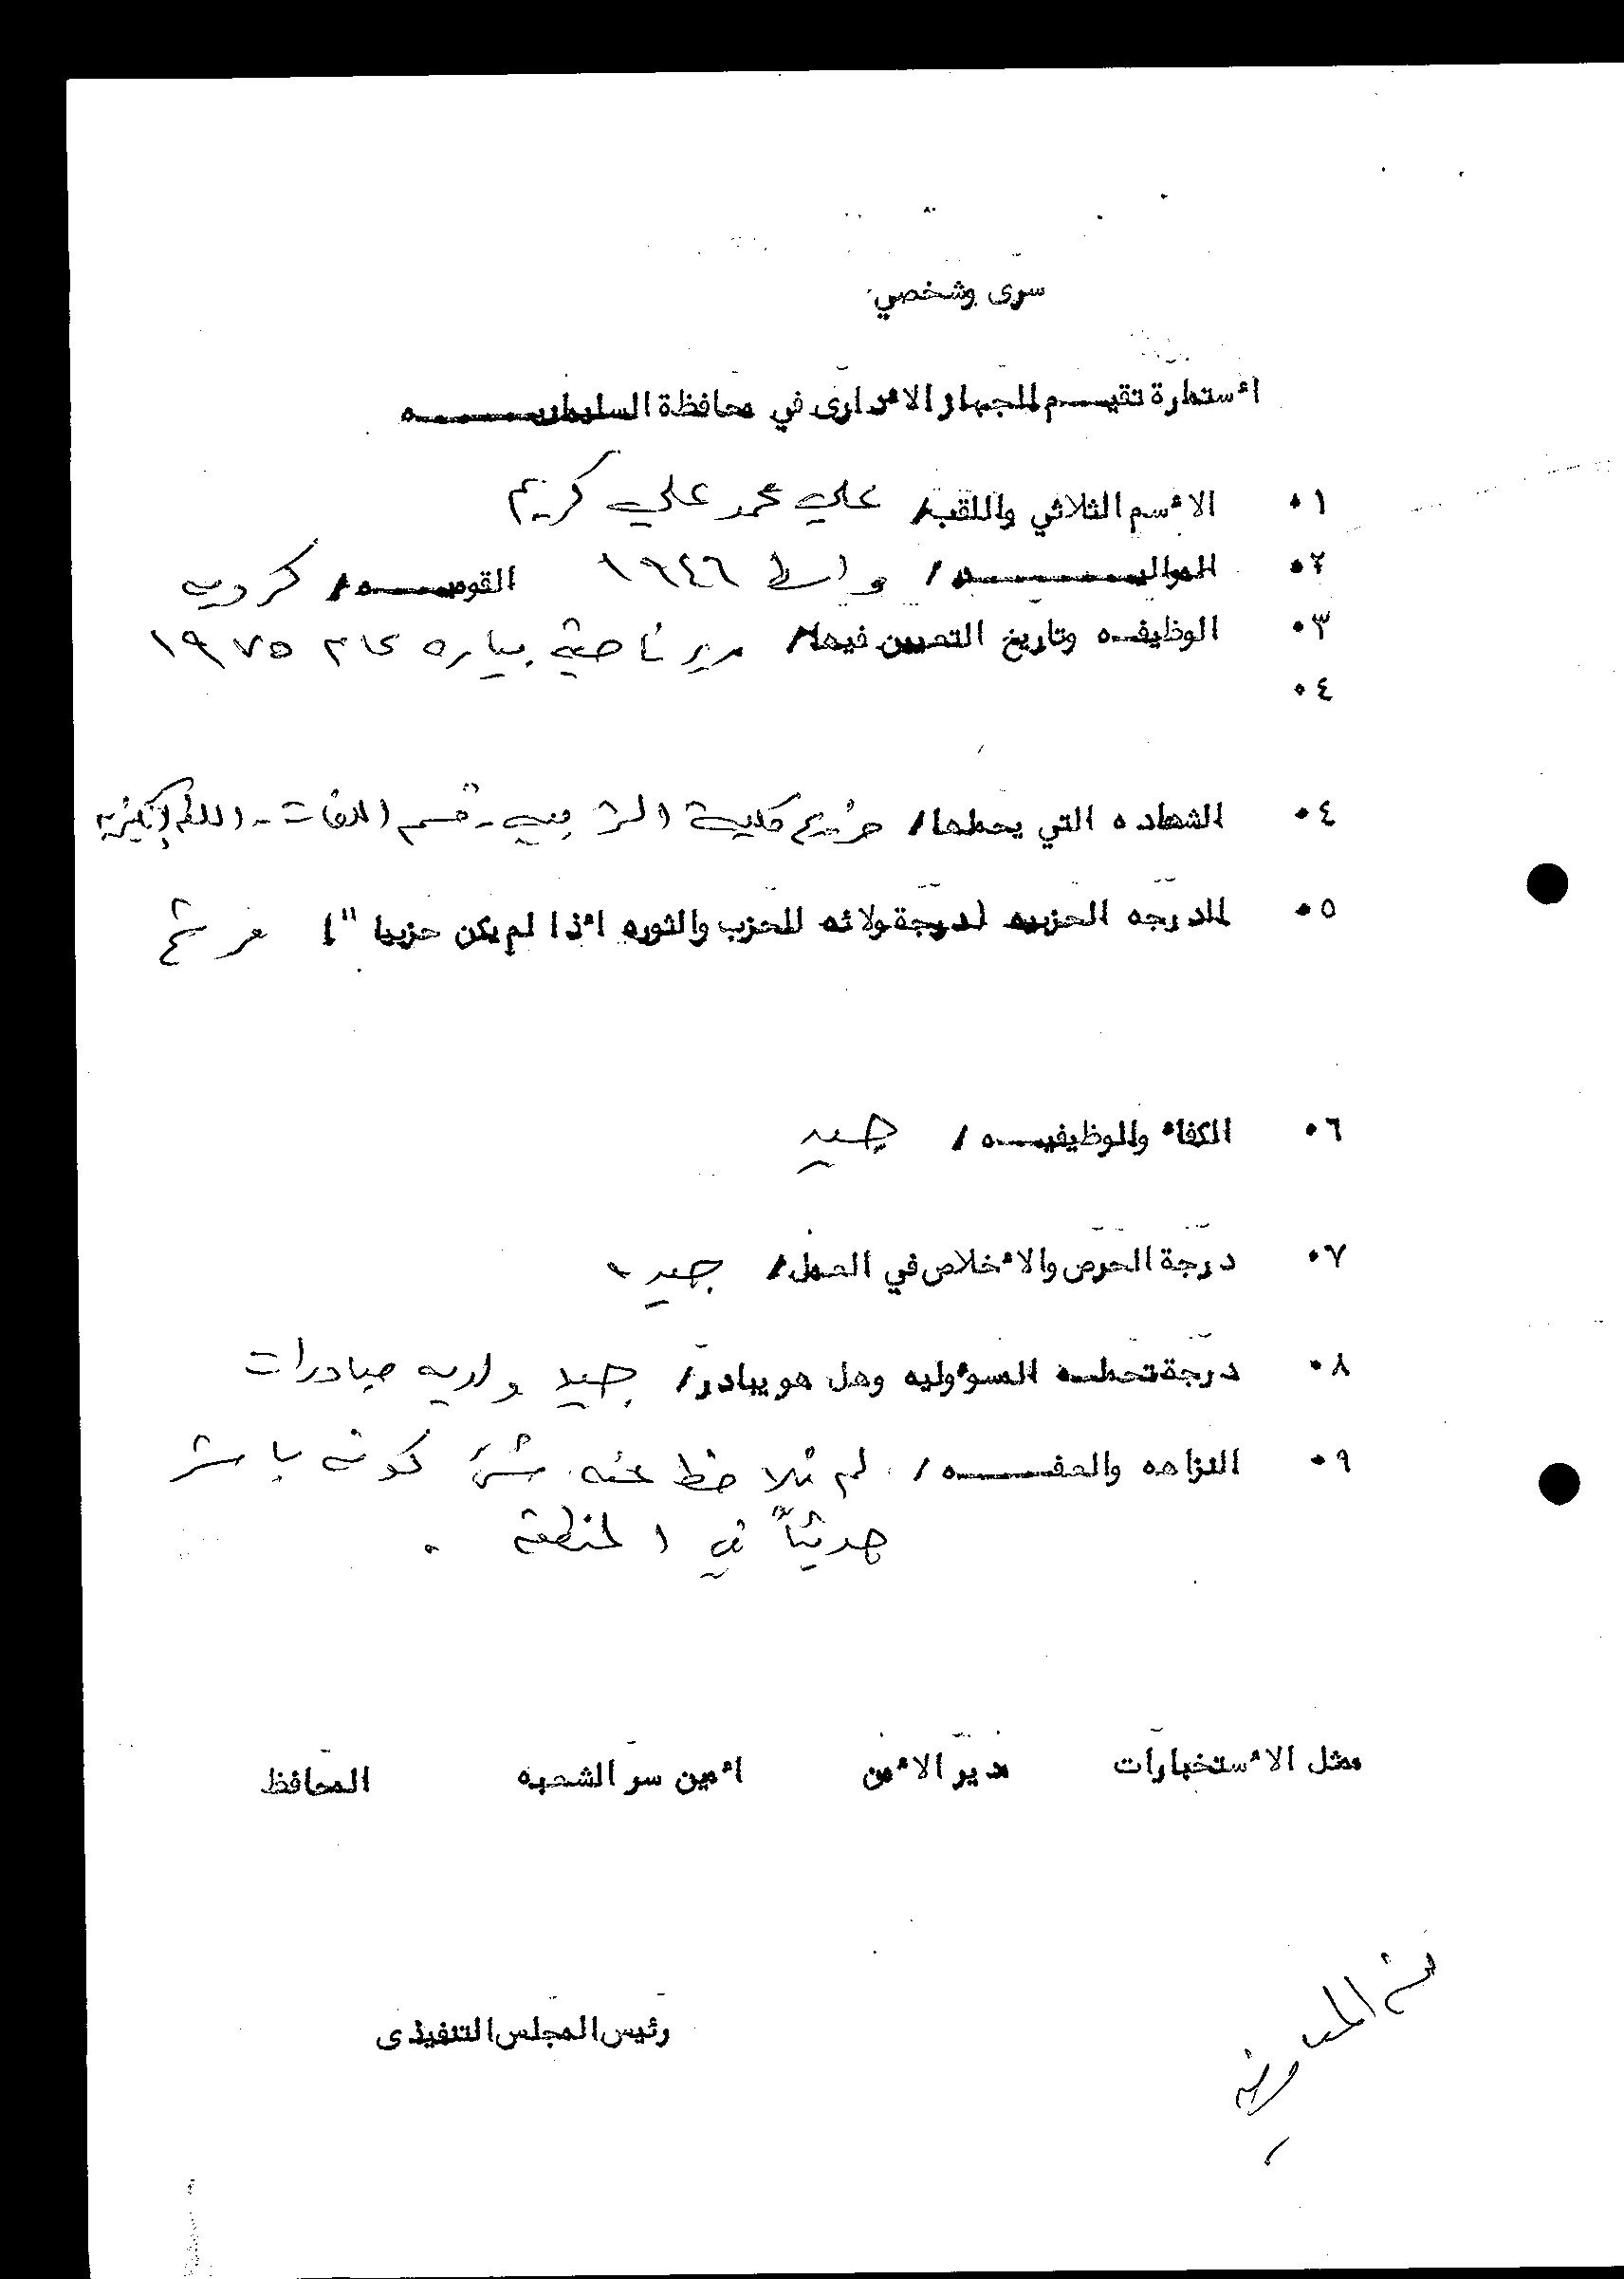 سرى وشخصي
استمارة تقيـــم للجهاز الادارى في محافظة السليمانيـــــه
٠١ الاسم الثلاثي واللقب/ علي محمد علي كريم
٠٢ المواليـــــــد/ واسط ١٩٤٦ القوميـــــه/ كرديه
٠٣ الوظيفـه وتاريخ التعيين فيها/ مدير ناحية بياره عام ١٩٧٥
٠٤
٠٤ الشهاده التي يحملها/ خريج كلية التربيه - قسم اللغات - اللغه الانكليزيه
٠٥ الدرجه الحزبيه (درجة ولائه للحزب والثوره اذا لم يكن حزبيا") مرشح
٠٦ الكفاءه الوظيفيـــه/ جيد
٠٧ درجة الحرص والاخلاص في العمل/ جيد ٠
٠٨ درجة تحملـه المسؤوليه وهل هو يبادر/ جيد ولديه مبادرات
٠٩ النزاهه والعفـــــه/ لم نلاحظ عنه شئ كونه باشر
حديثاً في المنطقة ٠
ممثل الاستخبارات مدير الامن امين سر الشعبه المحافظ
رئيس المجلس التنفيذى